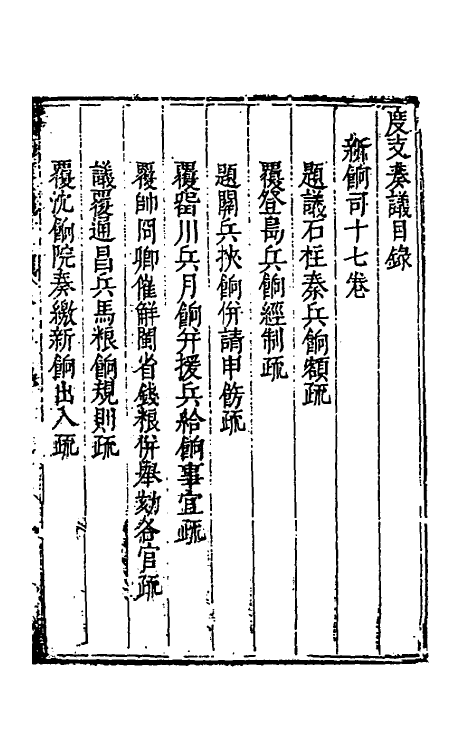 度支奏議目錄
新餉司十七卷
題議石砫秦兵餉額疏
覆登島兵餉經制疏
題關兵挾餉併請申飭疏
覆留川兵月餉并援兵給餉事宜疏
覆帥同卿催解閩省錢粮併舉劾各官疏
議覆通昌兵馬粮餉規則疏
覆沈餉院奏繳新餉出入疏